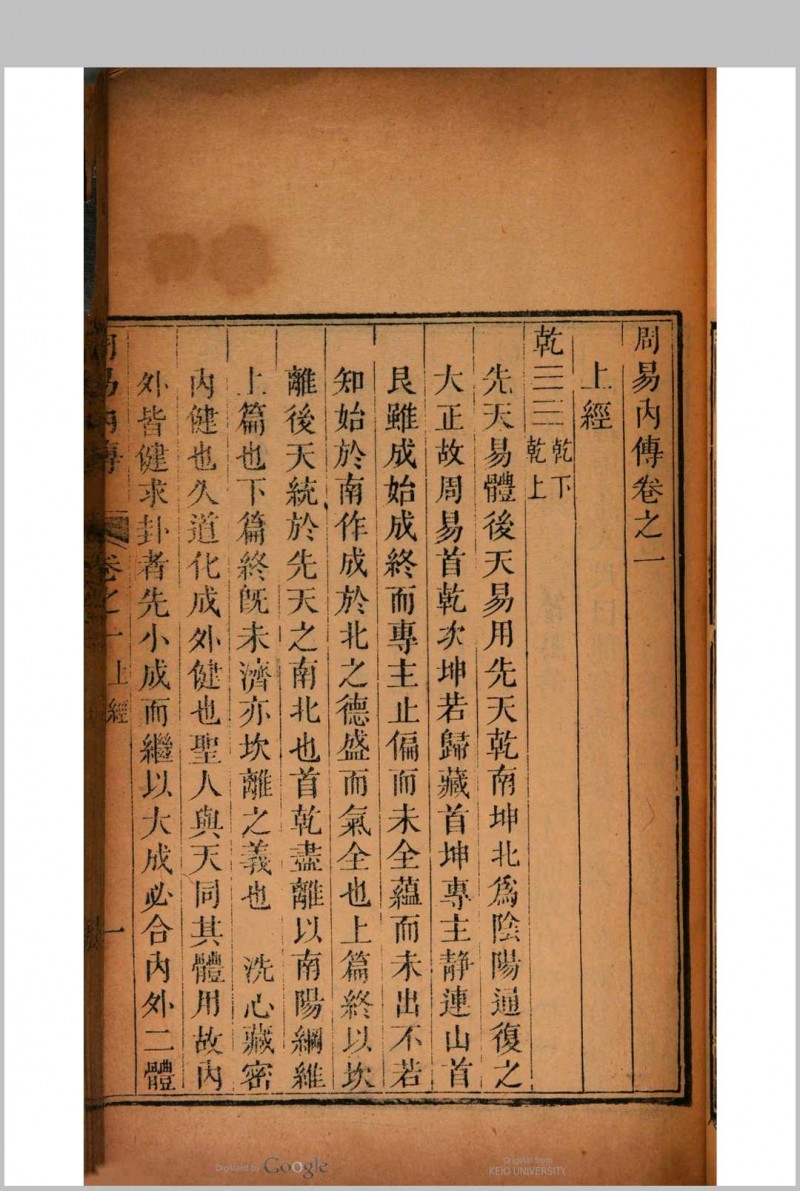 周易內傳卷之一
上經
乾 ☰☰ 乾下 乾上
先天易體後天易用先天乾南坤北爲陰陽通復之
大正故周易首乾次坤若歸藏首坤專主靜連山首
艮雖成始成終而專主止偏而未全蘊而未出不若
知始於南作成於北之德盛而氣全也上篇終以坎
離後天統於先天之南北也首乾盡離以南陽綱維
上篇也下篇終旣未濟亦坎離之義也 洗心藏密
內健也久道化成外健也聖人與天同其體用故內
外皆健求卦者先小成而繼以大成必合內外二體
周易內傳 卷之一 上經 一
Digitized by Google
Original from
KEIO UNIVERSITY